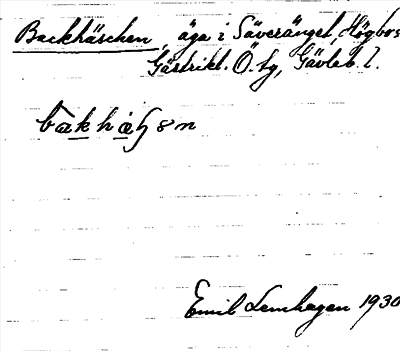 Backhäschen, äga i Säveränget, Högbo s
Gästrikl. Ö. tg, Gävleb. l.
bakhäʃən
Emil Lemhagen 1930